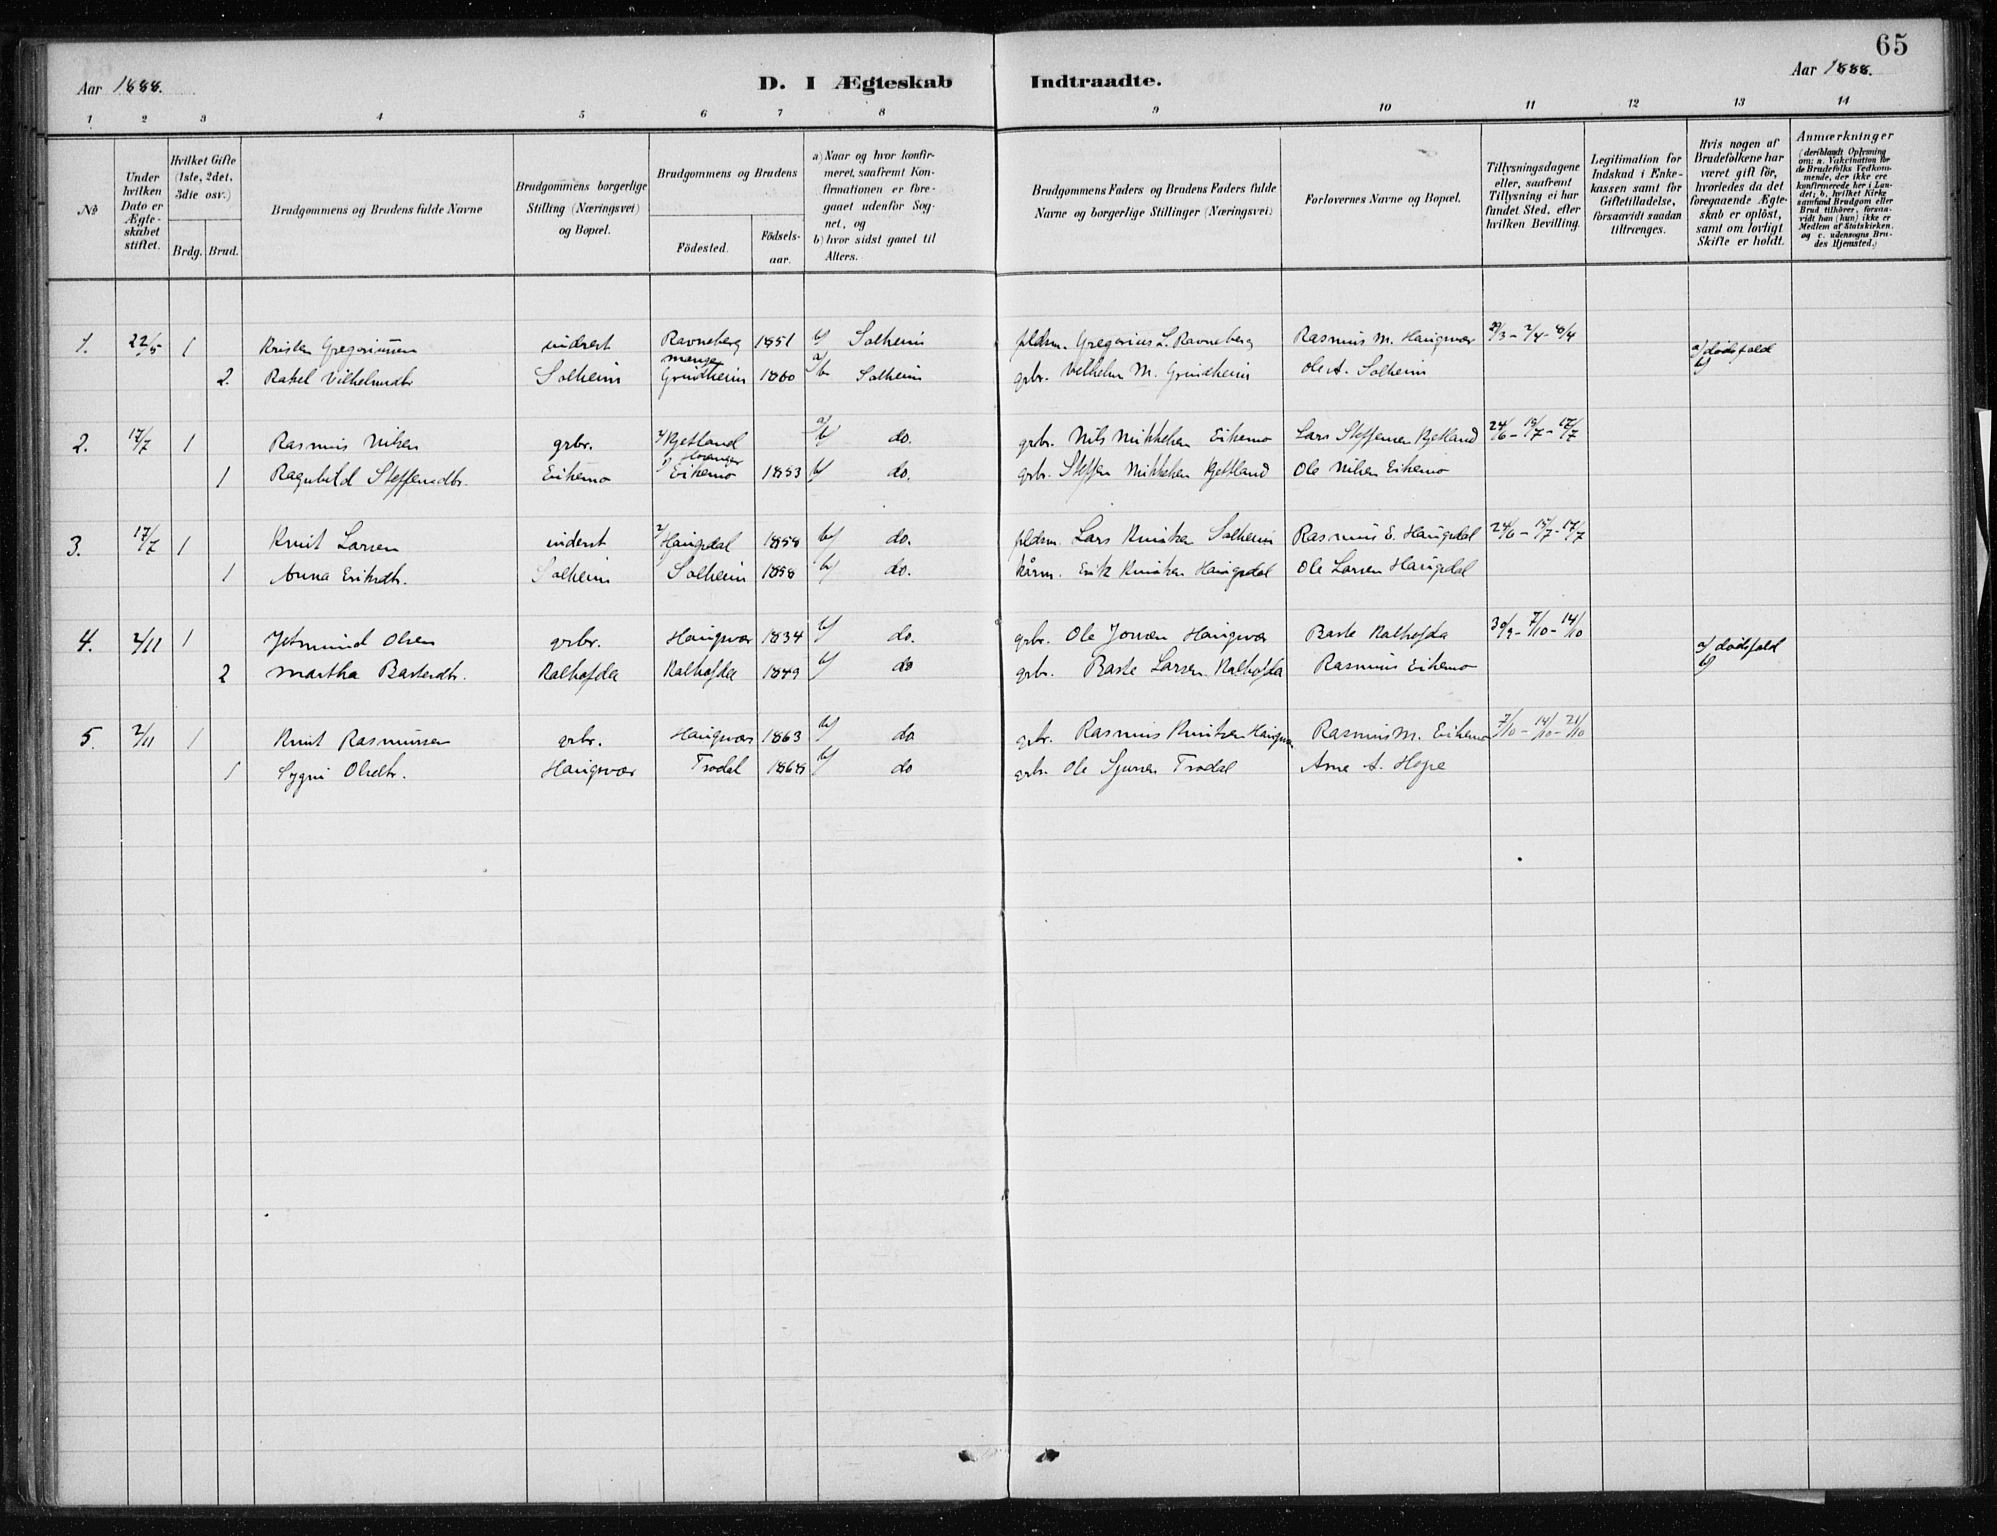 65
Aar 1888. D. I Ægteskab Indtraadte. Aar 1888.
1 2 3 4 5 6 7 8 9 10 11 12 13 14
No
Under hvilken Dato er Ægteskabet stiftet.
Hvilket Gifte (1ste, 2det, 3die osv.)
Brdg. Brud.
Brudgommens og Brudens fulde Navne
Brudgommens borgerlige Stilling (Næringsvei) og Bopæl.
Brudgommens og Brudens
Födested. Födselsaar.
a) Naar og hvor konfirmeret, saafremt Konfirmationen er foregaaet udenfor Sognet, og
b) hvor sidst gaaet til Alters.
Brudgommens Faders og Brudens Faders fulde Navne og borgerlige Stillinger (Næringsvei)
Forlovernes Navne og Bopæl.
Tillysningsdagene eller, saafremt Tillysning ei har fundet Sted, efter hvilken Bevilling.
Legitimation for Indskud i Enkekassen samt for Giftetilladelse, forsaavidt saadan tiltrænges.
Hvis nogen af Brudefolkene har været gift för, hvorledes da det foregaaende Ægteskab er oplöst, samt om lovligt Skifte er holdt.
Anmærkninger (deriblandt Oplysning om: a. Vakcination for de Brudefolks Vedkommende, der ikke ere konfirmerede her i Landet; b. hvilket Kirkesamfund Brudgom eller Brud tilhörer, forsaavidt han (hun) ikke er Medlem af Statskirken. og c. udensogns Brudes Hjemsted.)
1. 22/5 1 Kristen Gregoriussen inderst Ravneberg 1851 b/ Solheim pldsm. Gregorius L. Ravneberg Rasmus M. Haugsvær 29/3 - 2/4 - 8/4
2. Rakel Vilhelmsdtr Solheim manger Grindheim 1860 a/b Solheim grbr. Vilhelm M. Grindheim Ole A. Solheim a/ dødsfald b/
2. 17/7 1 Rasmus Nilsen grbr. Kjetland a/b/ do. grbr. Nils Mikkelsen Eikemo Lars Steffensen Kjetland 24/6 - 15/7 - 17/7
1 Ragnhild Steffensdtr. Eikemo Eikemo 1853 b/ do. grbr. Steffen Mikkelsen Kjetland Ole Nilsen Eikemo
3. 17/7 1 Knut Larsen inderst Haugsdal 1858 b/ do. pldsm. Lars Knutsen Solheim Rasmus E. Haugsdal 24/6 - 15/7 - 17/7
1 Anna Eriksdtr. Solheim Solheim 1858 b/ do. kårm. Erik Knutsen Haugsdal Ole Larsen Haugsdal
4. 2/11 1 Jetmund Olsen grbr. Haugsvær 1834 b/ do. grbr. Ole Jonsen Haugsvær Baste Kalhofda 30/9 - 7/10 - 14/10
2 Martha Bastesdtr. Kalhofda Kalhofda 1849 b/ do grbr. Baste Larsen Kalhofda Rasmus Eikemo a/ dødsfald b/
5. 2/11 1 Knut Rasmussen grbr. Haugsvær 1863 b/ do grbr. Rasmus Knutsen Haugsv. Rasmus M. Eikemo 7/10 - 14/10 - 21/10
1 Sygni Olsdtr. Haugsvær Trodal 1868 b/ do grbr. Ole Sjursen Trodal Arne A. Hope